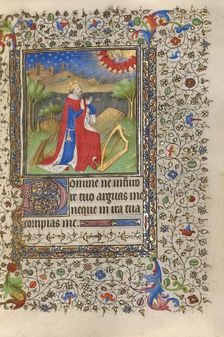 Domine ne in furo
re tuo arguas me
neque in ira tua
corripias me.